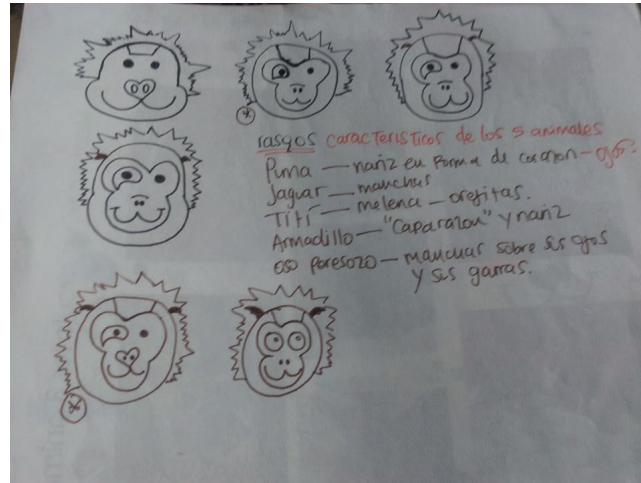 rasgos característicos de los 5 animales
Puma — nariz en forma de corazon — ojos.
Jaguar — manchas
Tití — melena — orejitas.
Armadillo — "Caparazon" y nariz
oso peresozo — manchas sobre sus ojos
y sus garras.